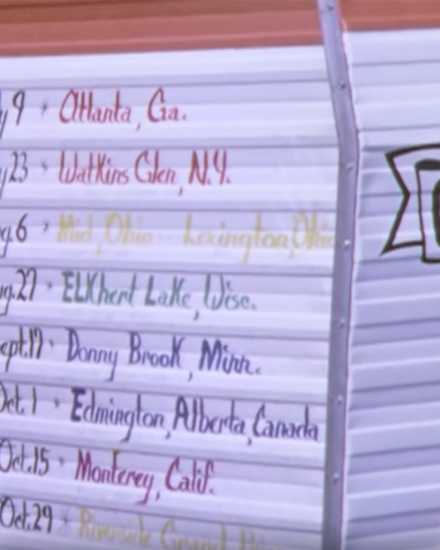 y 9 • Atlanta, Ga.
y 23 • Watkins Glen, N.Y.
ug. 6 • Mid Ohio - Lexington, Ohio
ug. 27 • ELKhert Lake, Wisc.
ept. 17 • Donny Brook, Minn.
Oct. 1 • Edmington, Alberta, Canada
Oct. 15 • Monterey, Calif.
Oct. 29 • Riverside Grand